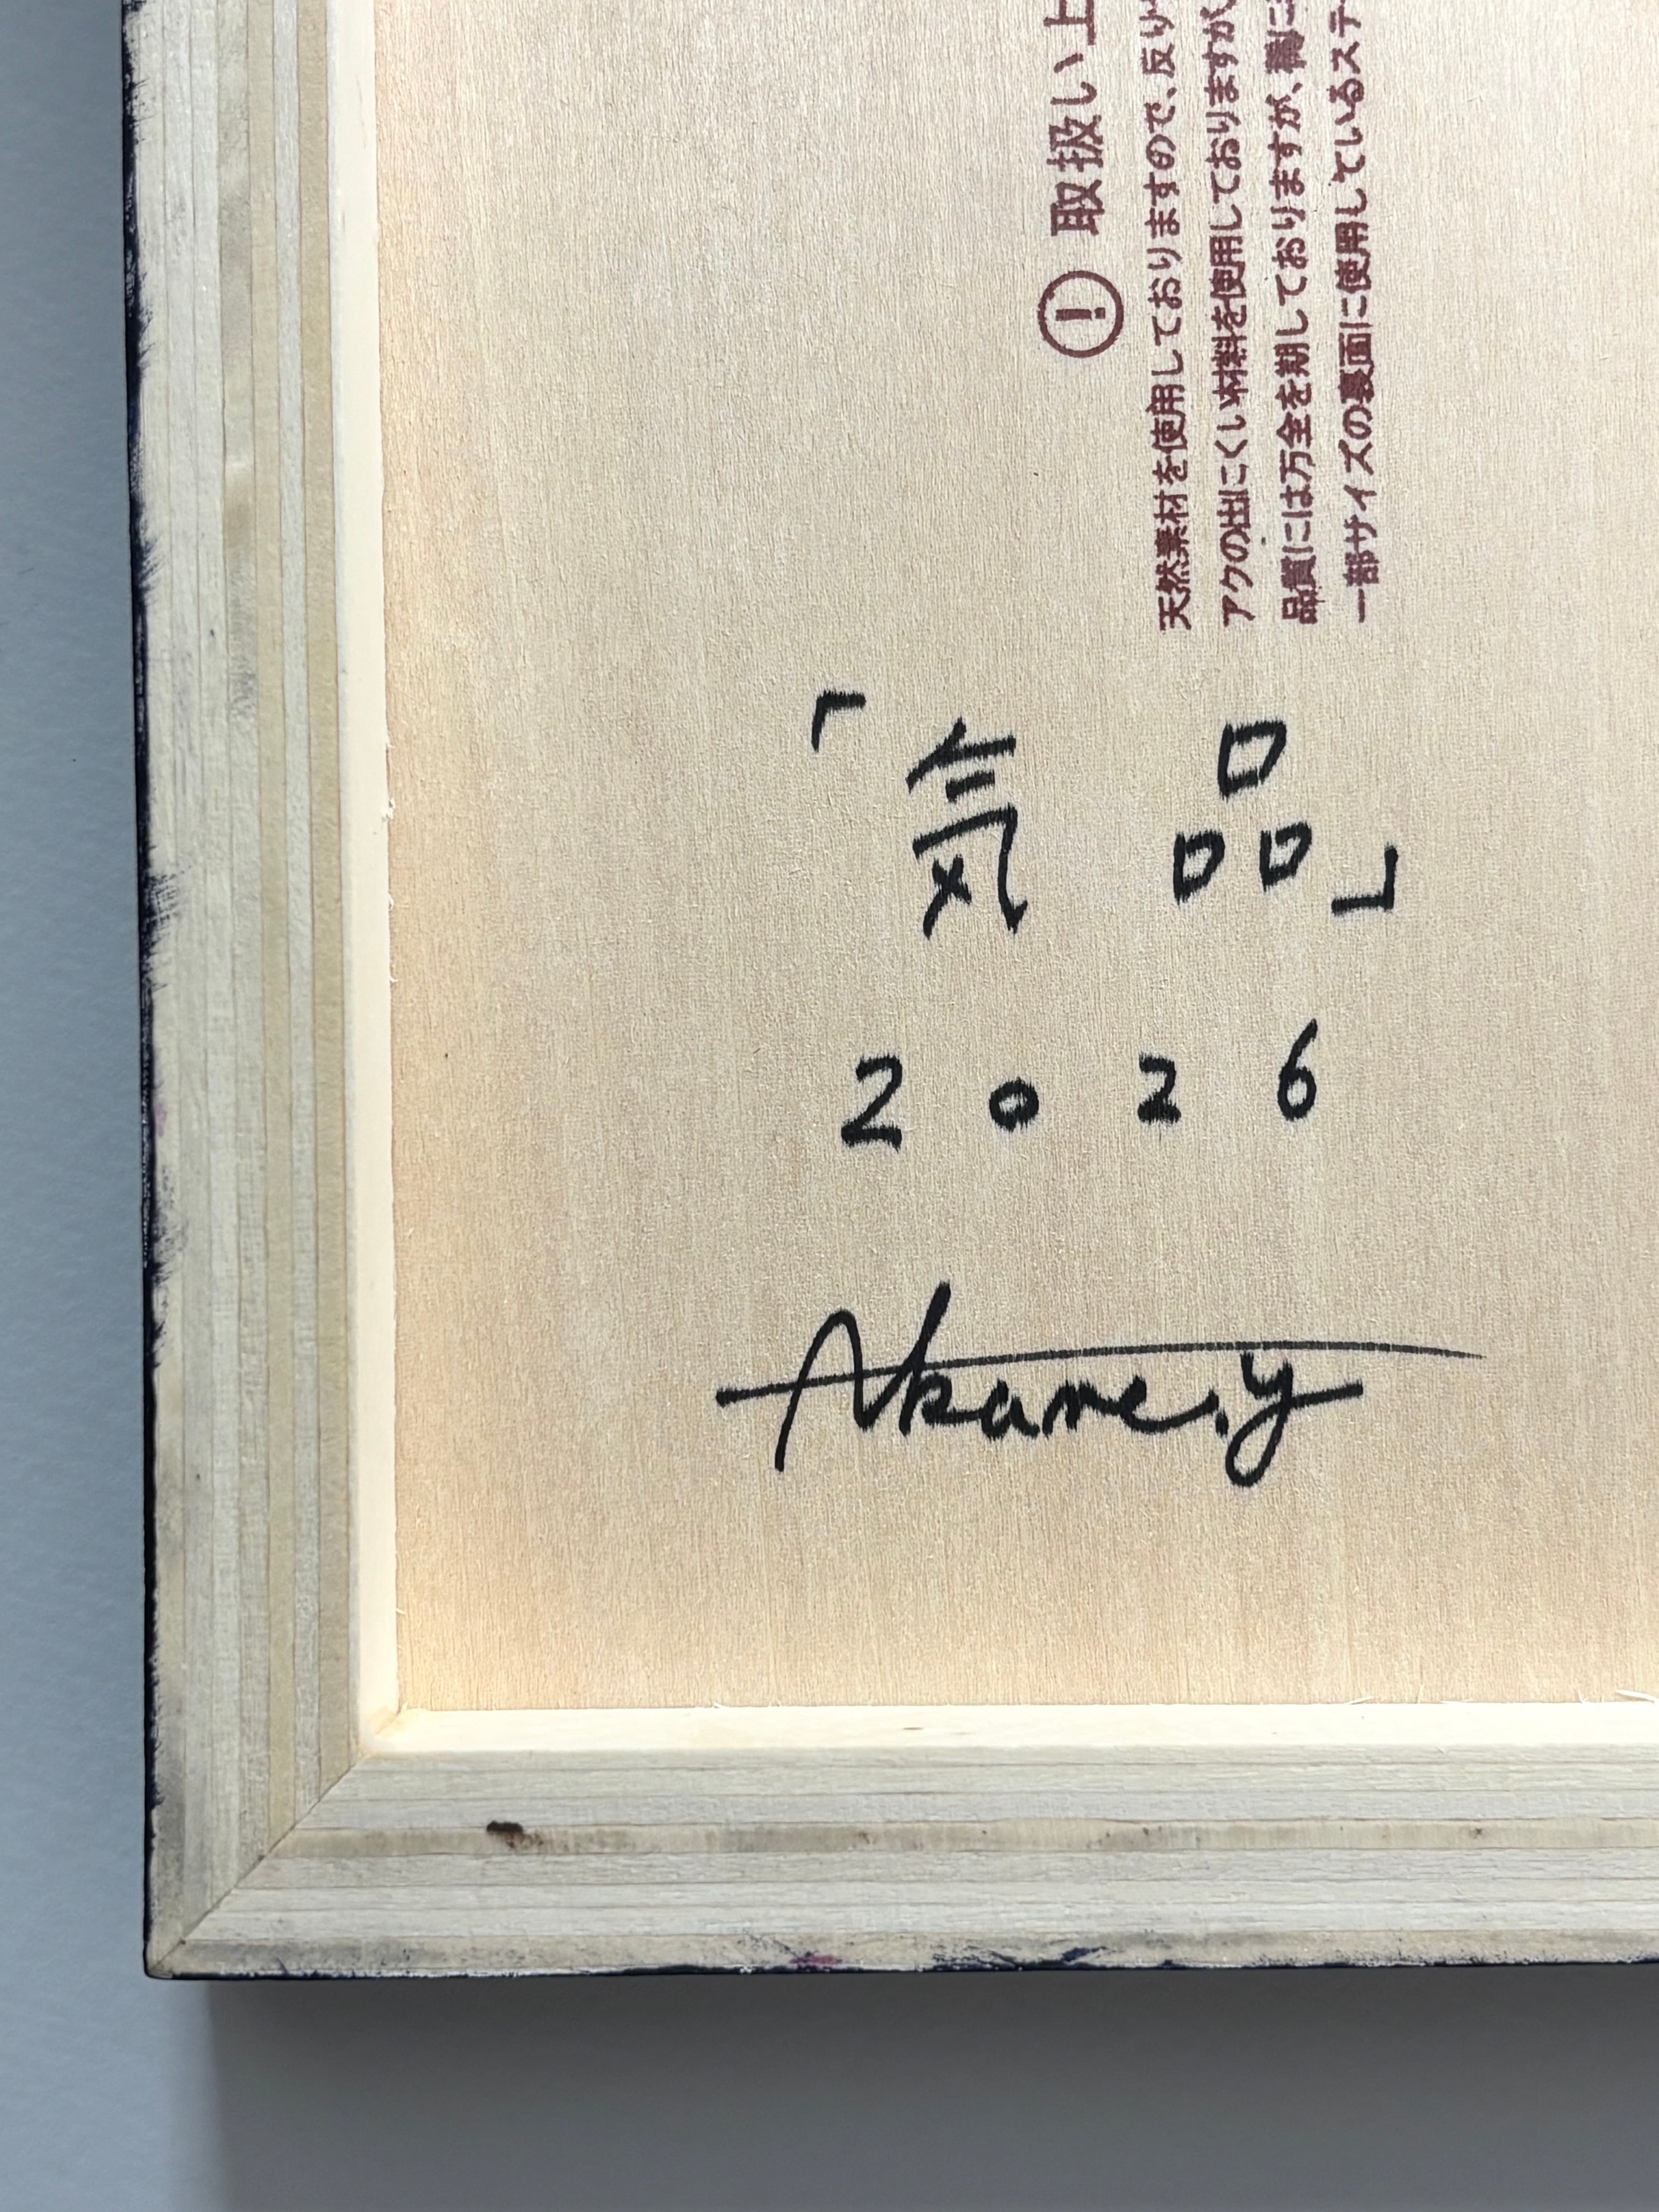 取扱い上
天然素材を使用しておりますので、反り
アクの出にくい材料を使用しておりますが、
品質には万全を期しておりますが、稀に
一部サイズの裏面に使用しているステ
「気品」
2026
Akane.y